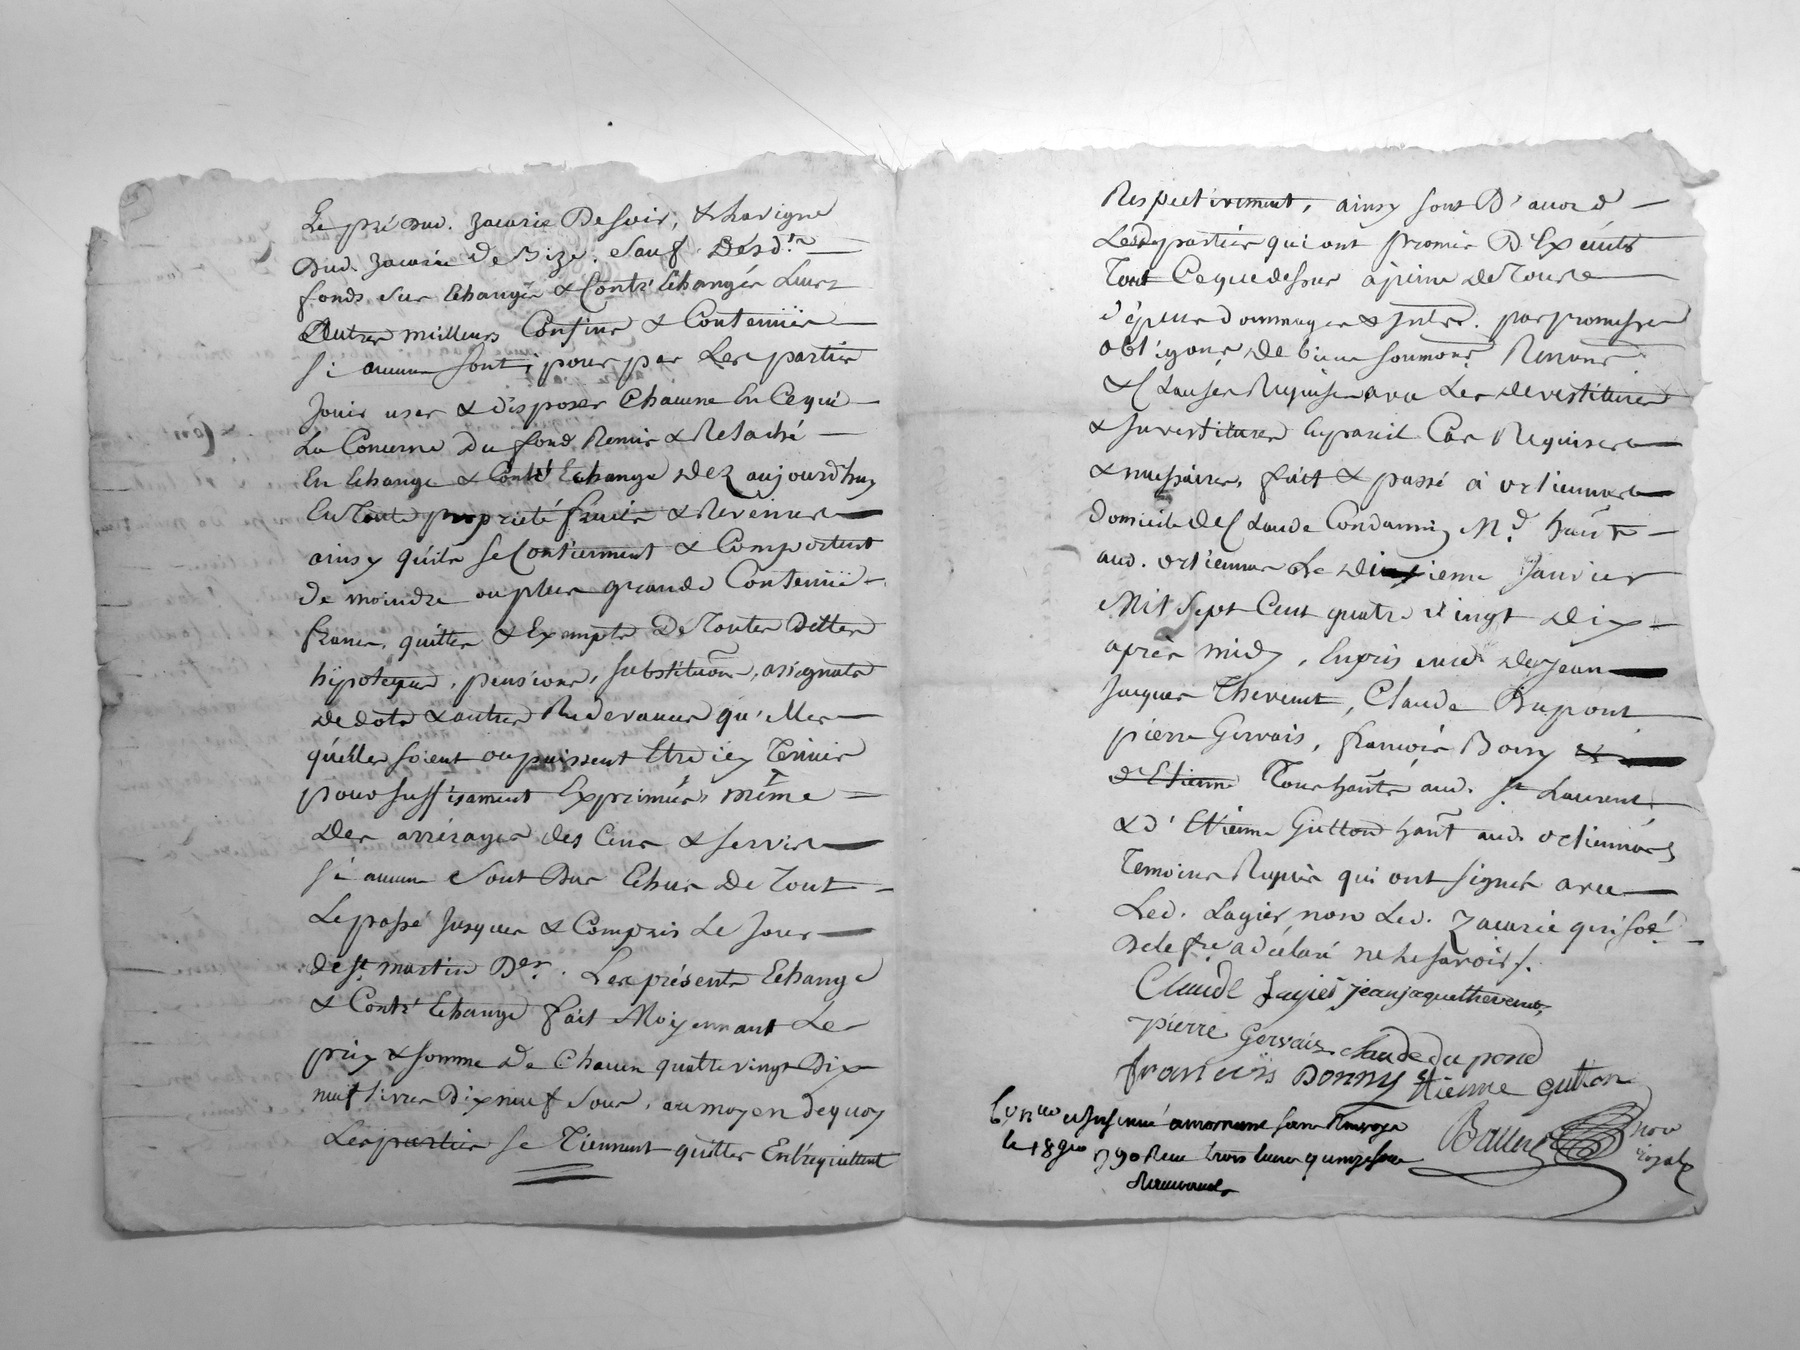 Le pré dud. Zacarie de soir, & la vigne
dud. Zacarie de Bize. Sauf desd.
fonds sus Echangés & Contr'Echangés Leurs
Autres meilleurs Confins & Contenües
si aucuns sont; pour par Les parties
Jouir user & disposer Chacune En Cequi
La Concerne Du fond Remis & Relaché
En Echange & Contr'Echange dez aujourd'huy
En Toute propriété fruits & Revenus
ainsy qu'ils se Contiennent & Comportent
de moindre ou plus grande Contenüe
francs, quittes & Exempts De Toutes Dettes
hÿpoteques, pensions, substituõns, assignats
de dots & autres Redevances qu'Elles
qu'elles soient ou puissent Etre icy Tenües
pour suffisament Exprimées, même
Des arrérages des Cens & servis
si aucuns sont Dus Echus De Tout
Le passé Jusques & Compris Le Jour
de st martin Der. Les présents Echange
& Contr'Echange fait Moÿennant Le
prix & somme De Chacun quatre vingt Dix
neuf livres Dix neuf Sous, au moyen dequoy
Les parties se Tiennent quittes
Respectivement, ainsy sont D'accord
Lesd parties qui ont promis D'Executer
Tout Ceque dessus à peine de Tous
dépens dommages & Inter. par promesses
obligons de biens soumons Renons
& Clauses Requises avec Les devestitures
& Investitures En pareil Cas Requises
& necessaires, fait & passé à
domicile de Claude Condamin Md. hant
aud. Le dixieme Janvier
Mil Sept Cent quatre vingt Dix
après midy, En présence de Jean
Jacques Thevenet, Claude Dupont
pierre Gervais, francois
d'Etienne Tous hants aud. st Laurent
& d'Etienne Gutton hant aud.
Temoins Requis qui ont signés avec
Led. Lagier, non Led. Zacarie qui
De le fre. a déclaré ne le savoir /.
Claude Lagier jean jaque thevenet
pierre Gervais claude du pond
francois Donny Etienne gutton
nore
royal
le 18 1790 Reçu trois livres quinze sous